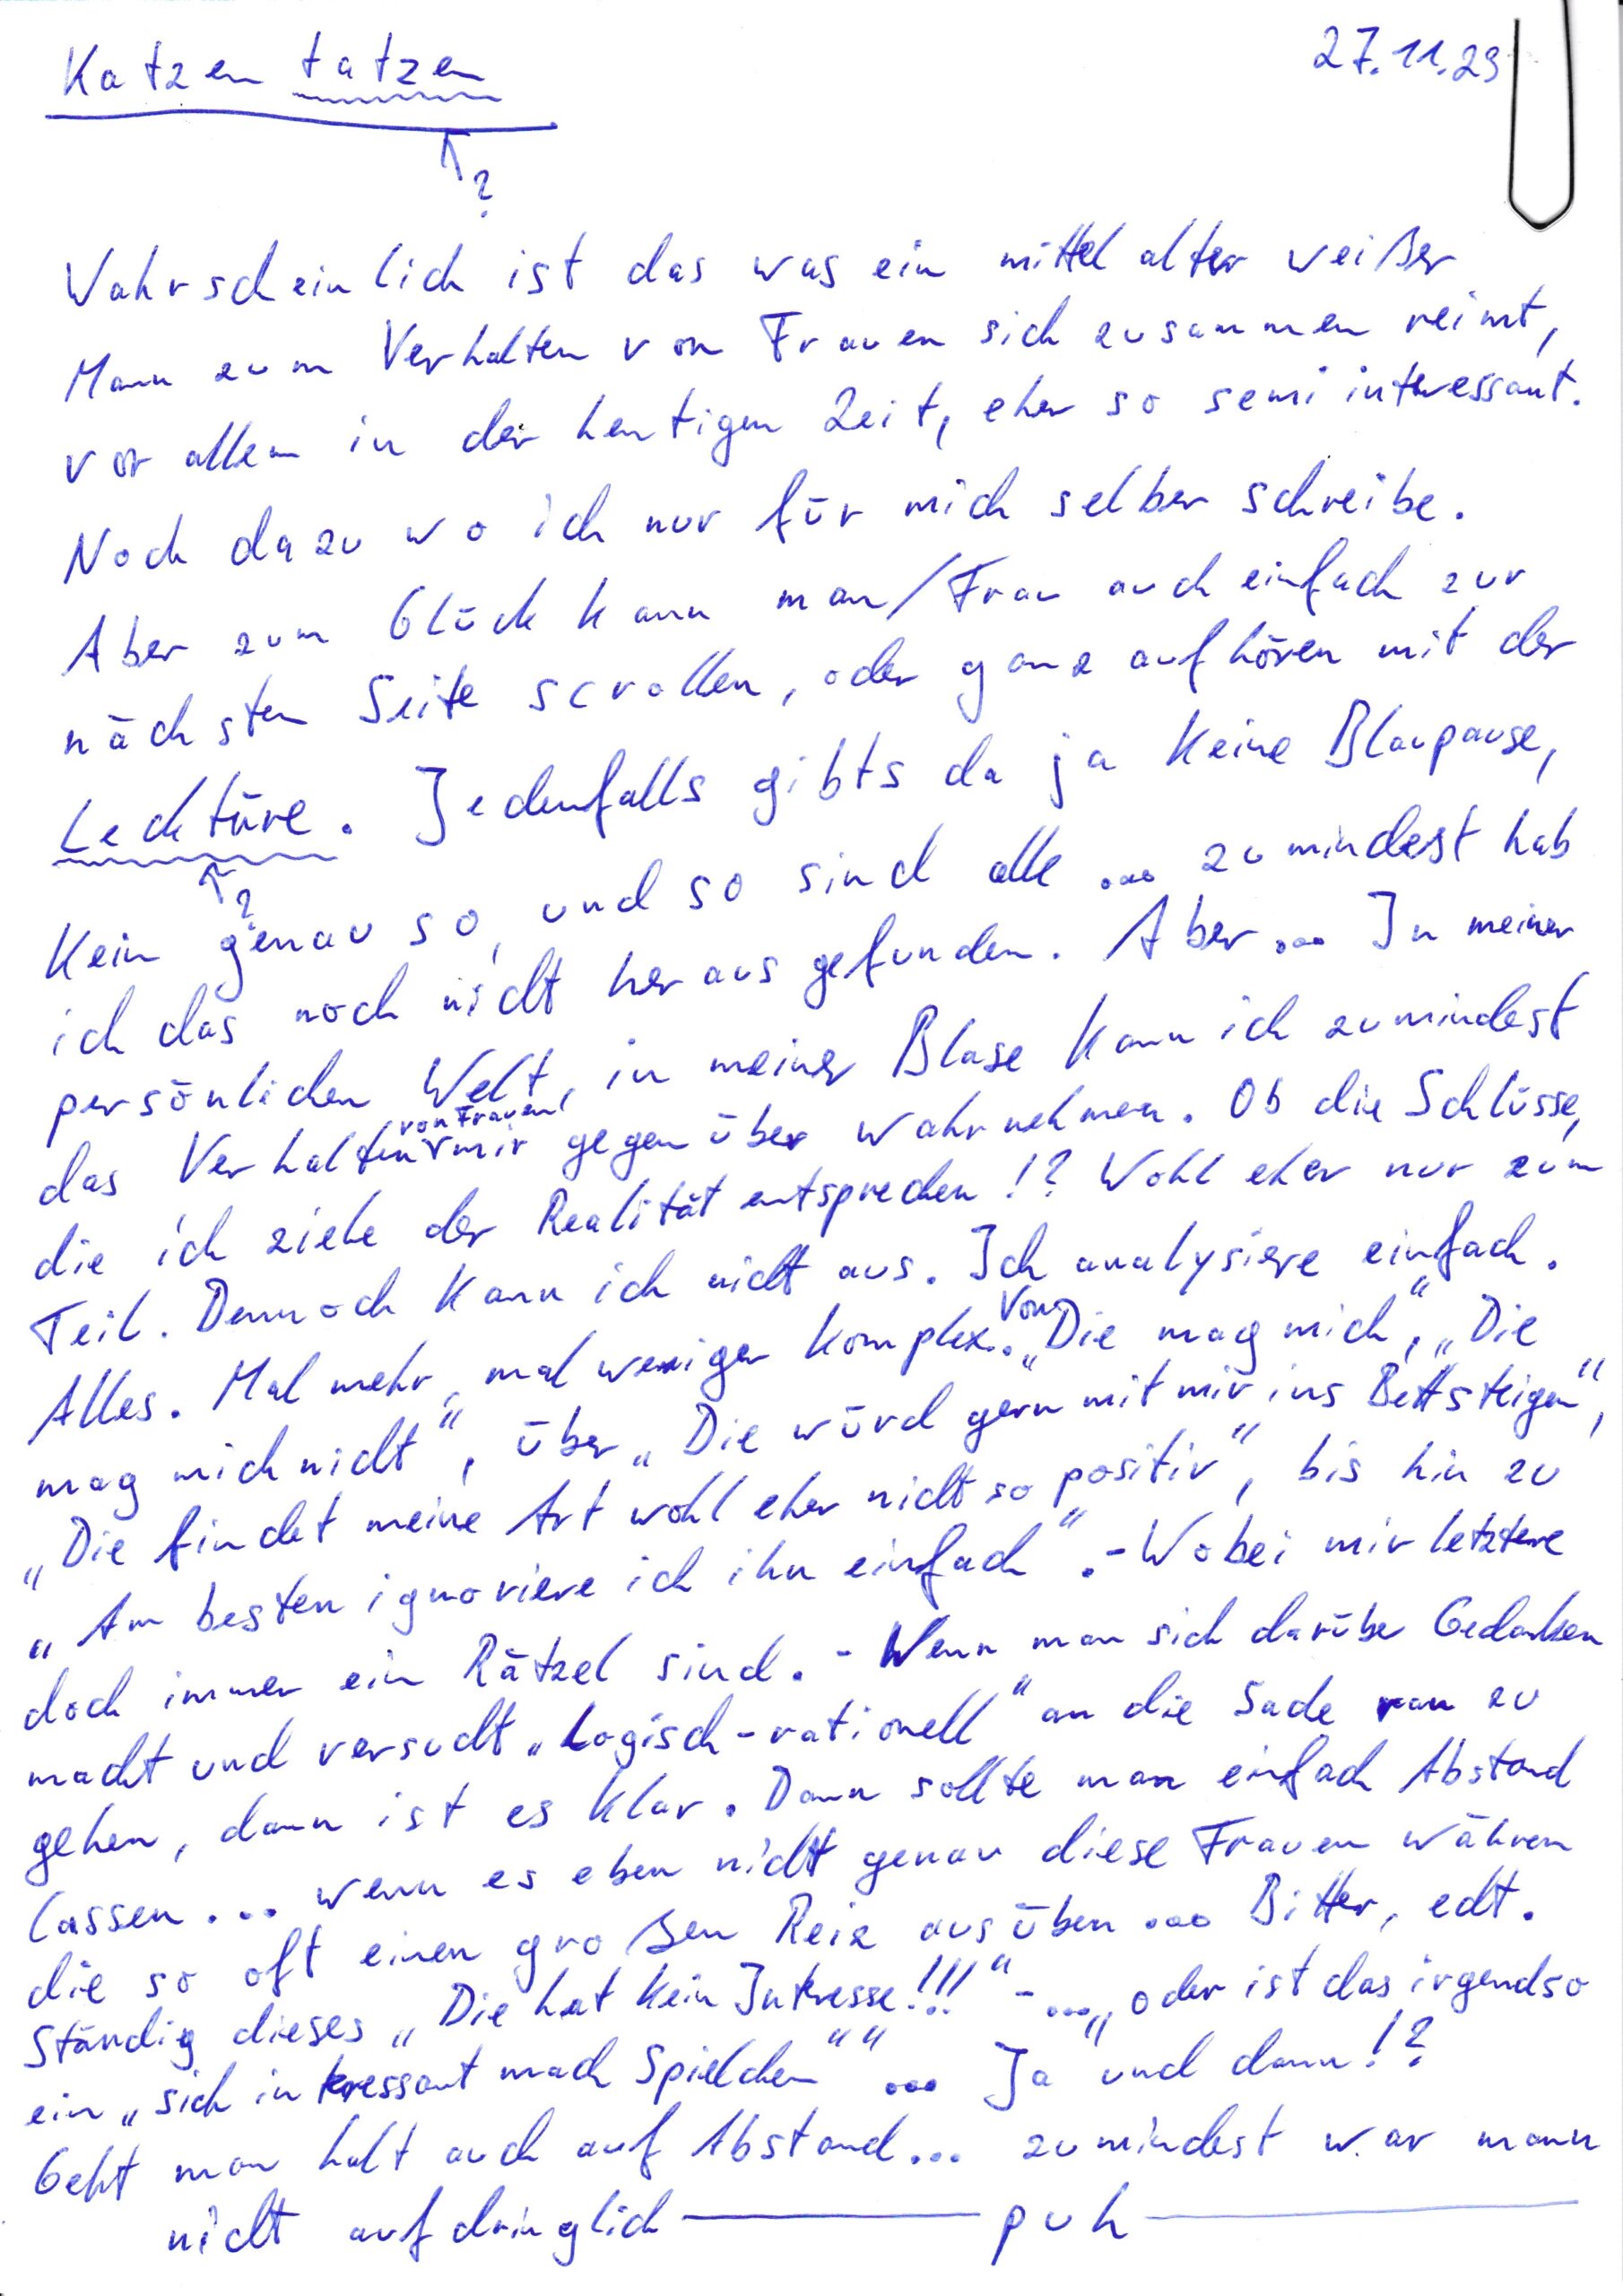 Katzentatzen
27.11.23
?
Wahrscheinlich ist das was ein mittelalter weißer
Mann zum Verhalten von Frauen sich zusammen reimt,
vor allem in der heutigen Zeit, eher so semi interessant.
Noch dazu wo ich nur für mich selber schreibe.
Aber zum Glück kann man/Frau auch einfach zur
nächsten Seite scrollen, oder ganz aufhören mit der
Lecktüre. Jedenfalls gibts da ja keine Blaupause,
?
Kein genau so, und so sind alle ... zumindest hab
ich das noch nicht heraus gefunden. Aber ... In meiner
persönlichen Welt, in meiner Blase kann ich zumindest
von Frauen
das Verhalten mir gegenüber wahrnehmen. Ob die Schlüsse,
die ich ziehe der Realität entsprechen!? Wohl eher nur zum
Teil. Dennoch kann ich nicht aus. Ich analysiere einfach.
Von
Alles. Mal mehr, mal weniger komplex. „Die mag mich“, „Die
mag mich nicht“, über „Die würd gern mit mir ins Bett steigen“,
„Die findet meine Art wohl eher nicht so positiv“, bis hin zu
„Am besten ignoriere ich ihn einfach“. - Wobei mir letztere
doch immer ein Rätzel sind. - Wenn man sich darüber Gedanken
macht und versucht „Logisch-rationell“ an die Sache ran zu
gehen, dann ist es klar. Dann sollte man einfach Abstand
lassen ... wenn es eben nicht genau diese Frauen währen
die so oft einen großen Reiz ausüben ... Bitter, echt.
Ständig dieses „Die hat kein Interesse!!!“ - ... „oder ist das irgendso
ein „sich interessant mach Spielchen“ “ ... Ja und dann!?
Geht man halt auch auf Abstand ... zumindest war mann
nicht aufdringlich — puh —